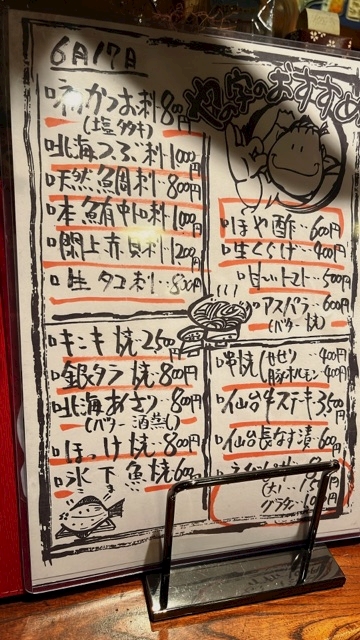 6月17日
やの字のおすすめ
初かつお刺 800円
(塩タタキ)
北海つぶ刺 1000円
天然鯛刺 800円
本鮪中トロ刺 1000円
閖上赤貝刺 1200円
生タコ刺 800円
キンキ焼 2500円
銀タラ焼 800円
北海あさり 800円
(バター 酒蒸し)
ほっけ焼 800円
氷下魚焼 600円
ほや酢 600円
生くらげ 400円
甘いトマト 500円
アスパラ 600円
(バター焼)
串焼(せせり 400円
豚ホルモン 400円
仙台牛ステーキ 3500円
仙台長なす漬 600円
(大)
グラタン